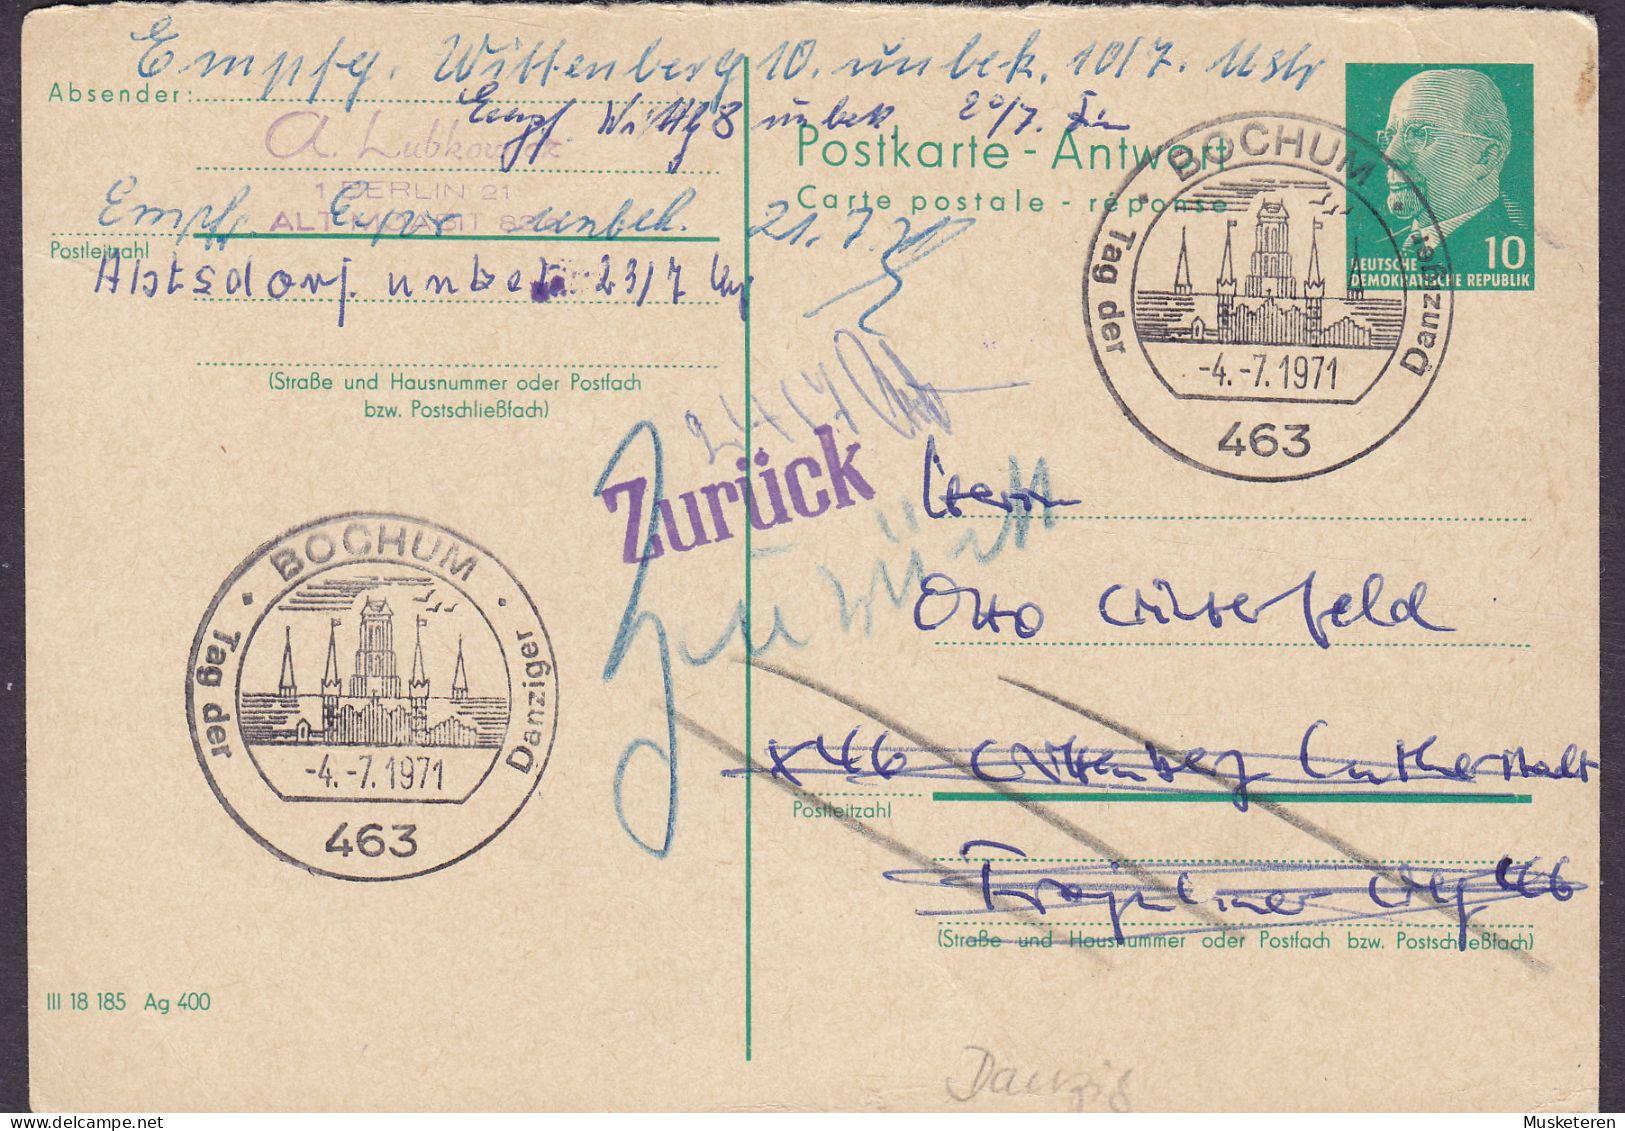 Empfg. Wittenberg 10. unbek. 10/7.
Absender:
Empf. Wittbg 8 unbek. 20/7.
A. Lubkowitz
1 BERLIN 21
ALT-MOABIT
Empf. unbek. 21.7.
Postleitzahl
Abtsdorf unbek 23/7
(Straße und Hausnummer oder Postfach
bzw. Postschließfach)
Postkarte - Antwort
Carte postale - réponse
10
DEUTSCHE
DEMOKRATISCHE REPUBLIK
BOCHUM
Tag der Danziger
-4.-7.1971
463
24/7
Zurück
Zurück
Herrn
Otto Bitterfeld
x 46 Wittenberg Lutherstadt
Postleitzahl
46
(Straße und Hausnummer oder Postfach bzw. Postschließfach)
BOCHUM
Tag der Danziger
-4.-7.1971
463
III 18 185 Ag 400
Danzig
Musketeren